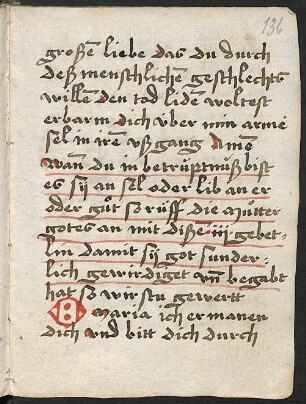 136
großen liebe das du durch
deß menschlichen geschlechts
willen den tod liden woltest
erbarm dich vber min arme
sel in iren vßgang Amen
wan du in betrüptnüß bist
es sÿ an sel oder lib an er
oder gůt so rüff die můtter
gotes an mit diße iij gebet-
lin damit sÿ got sunder-
lich gewirdiget vn̄ begabt
hat so wirstu gewertt
O maria ich ermanen
dich vnd bitt dich durch